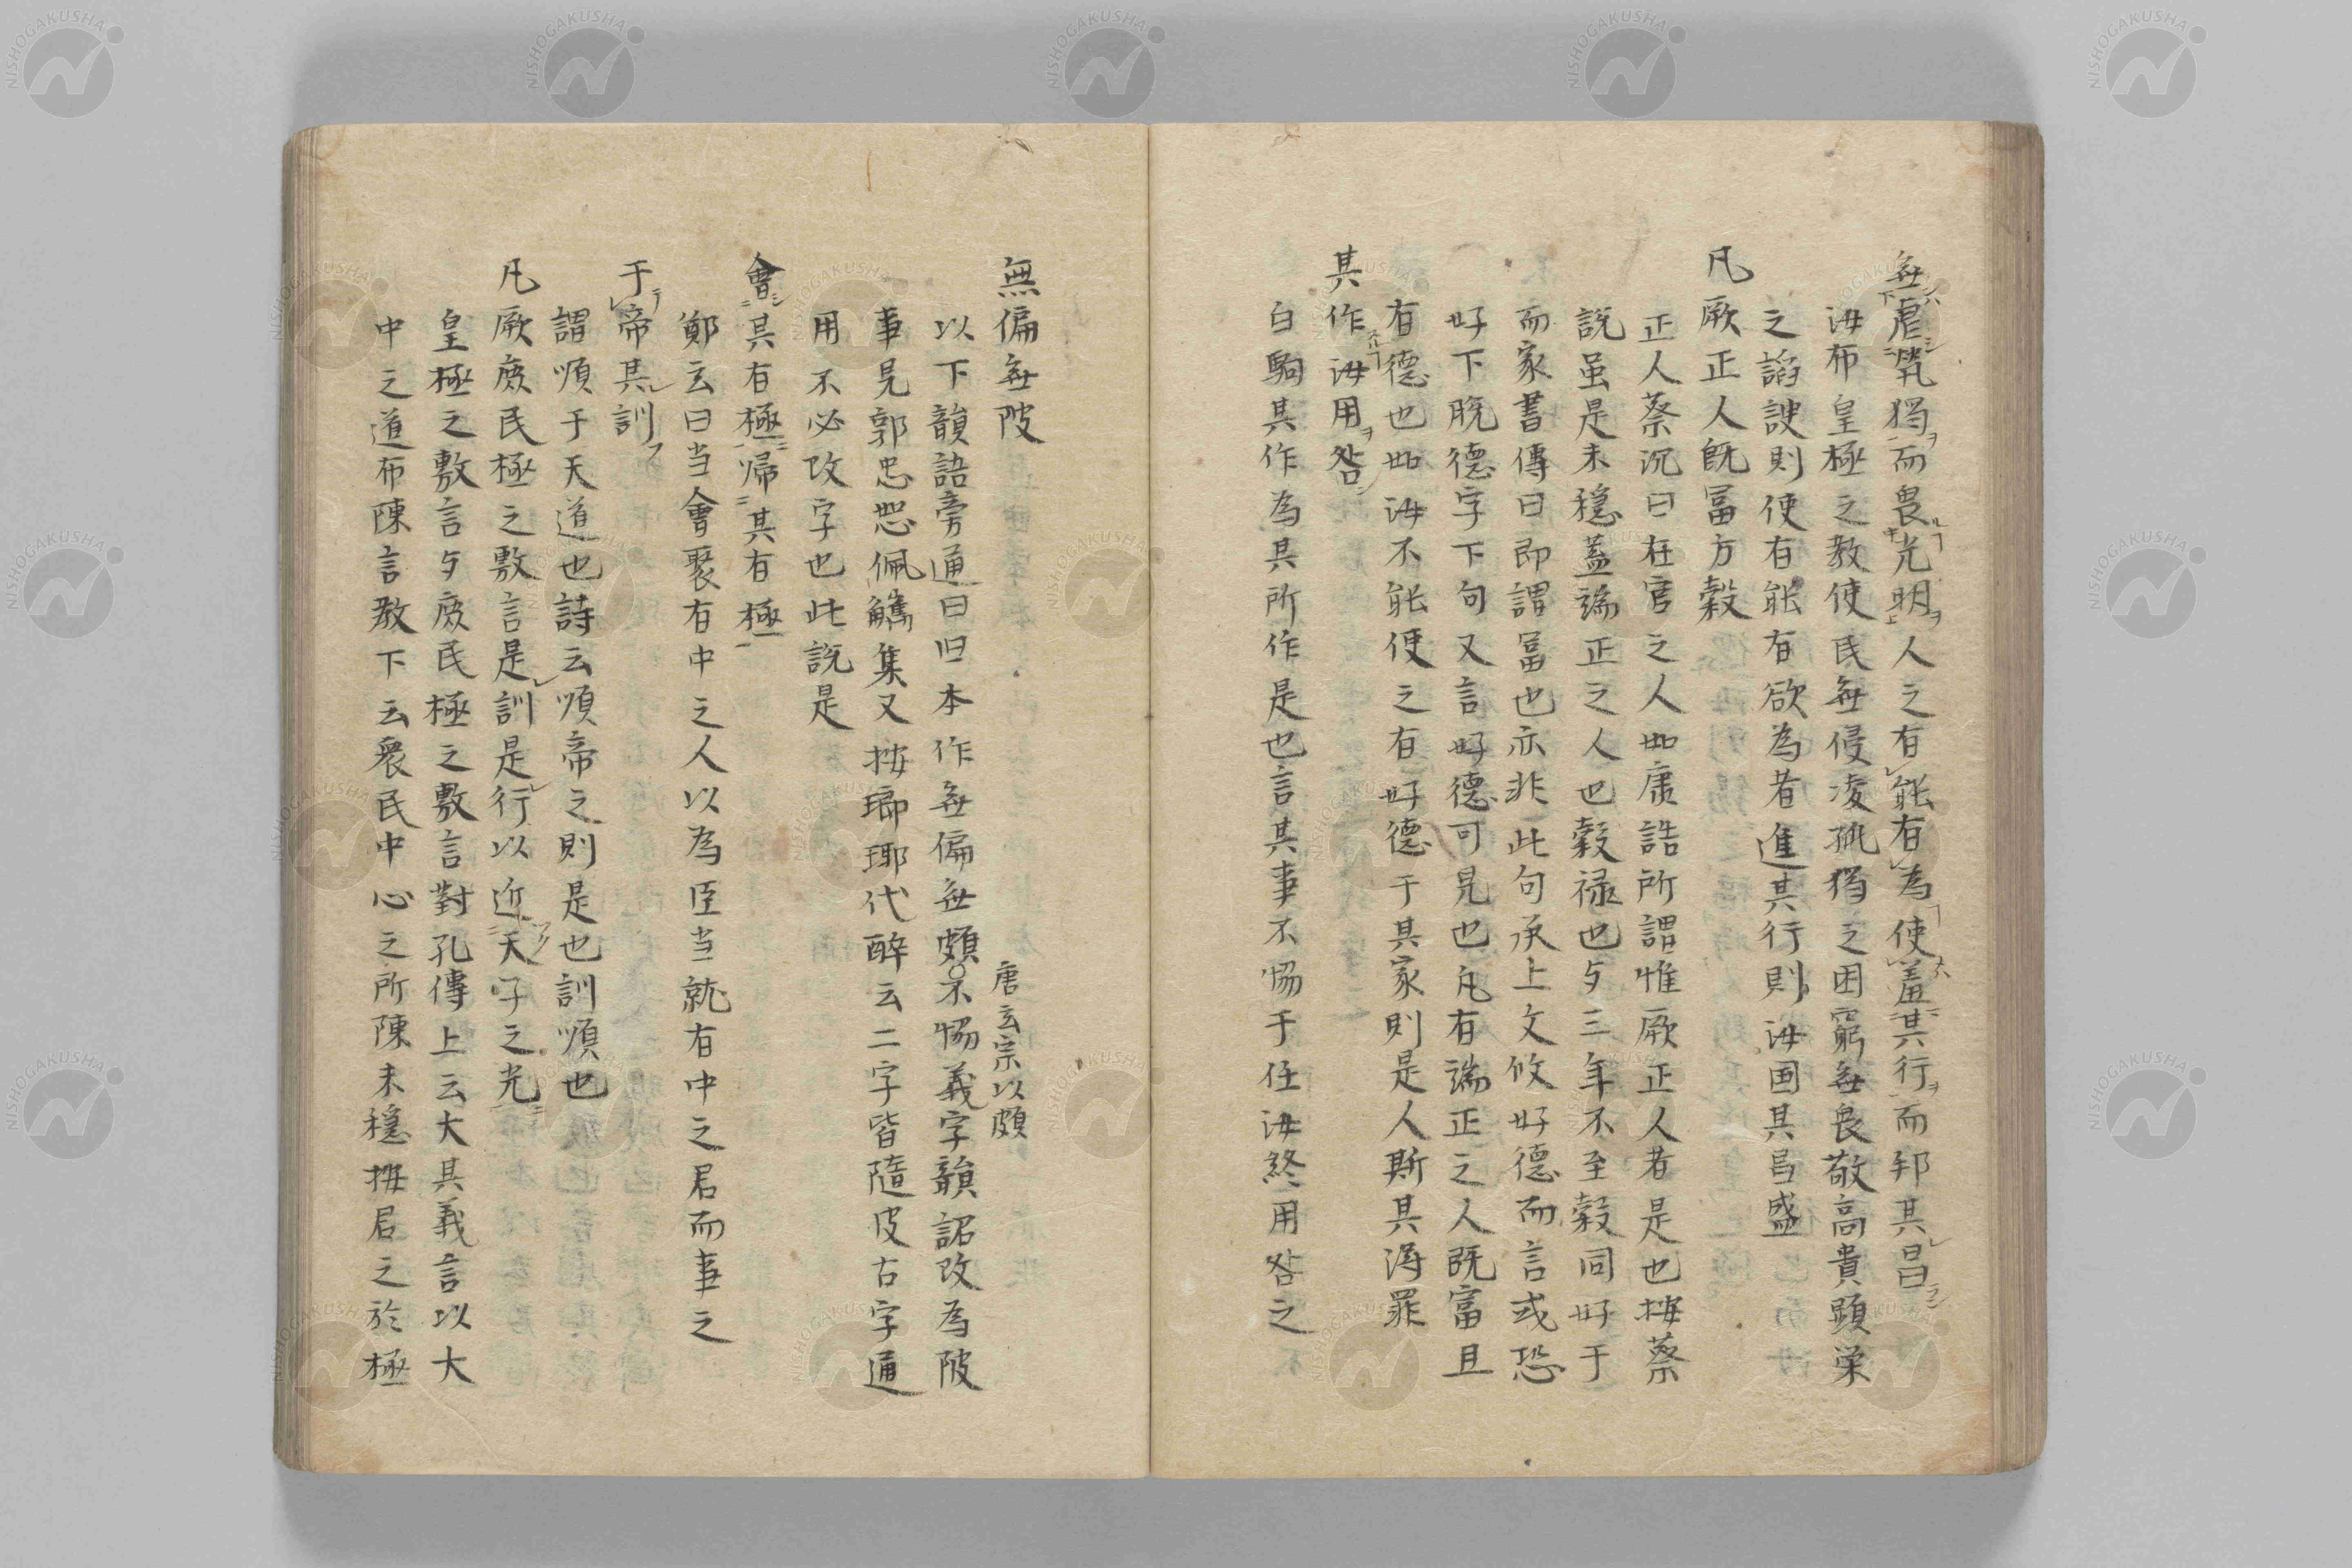 無虐煢獨而畏光明人之有能有為使羞其行而邦其昌
汝布皇極之教使民無侵凌孤獨之困窮無畏敬高貴顕栄
之諂諛則使有能有欲為者進其行則汝国其昌盛
凡厥正人既冨方穀
正人蔡沉曰在官之人如康誥所謂惟厥正人者是也按蔡
説虽是未穏蓋端正之人也穀禄也与三年不至穀同好于
而家書傳曰即謂冨也亦非此句承上文攸好德而言或恐
好下脱德字下句又言好德可見也凡有端正之人既富且
有德也如汝不能使之有好德于其家則是人斯其得罪
其作汝用咎
白駒其作為其所作是也言其事不恊于任汝終用咎之
無偏無陂
以下韻語旁通曰旧本作無偏無頗不恊義字韻詔改為陂
唐玄宗以頗
事見郭忠恕佩觿集又按瑯琊代酔云二字皆隨皮古字通
用不必改字也此説是
會其有極帰其有極
鄭玄曰当會聚有中之人以為臣当就有中之君而事之
于帝其訓
謂順于天道也詩云順帝之則是也訓順也
凡厥庶民極之敷言是訓是行以近天子之光
皇極之敷言与庶民極之敷言對孔傳上云大其義言以大
中之道布陳言教下云衆民中心之所陳未穏按君之於極
NISHOGAKUSHA